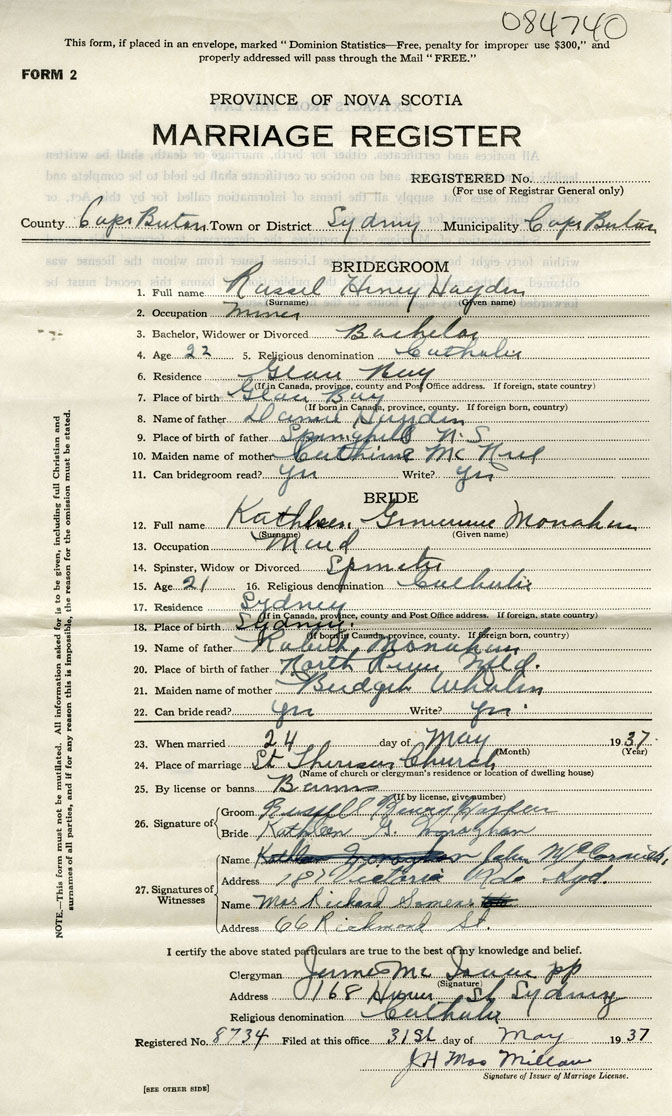 084740
This form, if placed in an envelope, marked "Dominion Statistics—Free, penalty for improper use $300," and
properly addressed will pass through the Mail "FREE."
FORM 2
PROVINCE OF NOVA SCOTIA
MARRIAGE REGISTER
REGISTERED No.
(For use of Registrar General only)
County Cape Breton Town or District Sydney Municipality Cape Breton
BRIDEGROOM
1. Full name Russel Henry Hayden
(Surname) (Given name)
2. Occupation Miner
3. Bachelor, Widower or Divorced Bachelor
4. Age 22 5. Religious denomination Catholic
6. Residence Glace Bay
(If in Canada, province, county and Post Office address. If foreign, state country)
7. Place of birth Glace Bay
(If born in Canada, province, county. If foreign born, country)
8. Name of father Hayden
9. Place of birth of father Springhill N.S.
10. Maiden name of mother Catherine McNeil
11. Can bridegroom read? Yes Write? Yes
BRIDE
12. Full name Kathleen Genevieve Monahan
(Surname) (Given name)
13. Occupation Maid
14. Spinster, Widow or Divorced Spinster
15. Age 21 16. Religious denomination Catholic
17. Residence Sydney
(If in Canada, province, county and Post Office address. If foreign, state country)
18. Place of birth Sydney
(If born in Canada, province, county. If foreign born, country)
19. Name of father Monahan
20. Place of birth of father North River Nfld.
21. Maiden name of mother Bridget Whalen
22. Can bride read? Yes Write? Yes
23. When married 24 day of May 1937
(Month) (Year)
24. Place of marriage St Theresas Church
(Name of church or clergyman's residence or location of dwelling house)
25. By license or banns Banns
(If by license, give number)
26. Signature of Groom Russell Henry Hayden
Bride Kathleen G. Monaghan
27. Signatures of Witnesses
Name John
Address 183 Victoria Rd. Syd.
Name Mrs Richard Somers
Address 66 Richmond St.
I certify the above stated particulars are true to the best of my knowledge and belief.
Clergyman James Mc pp
(Signature)
Address 168 St Sydney
Religious denomination Catholic
Registered No. 8734 Filed at this office 31st day of May 1937
J H MacMillan
Signature of Issuer of Marriage License.
[SEE OTHER SIDE]
NOTE.—This form must not be mutilated. All information asked for is to be given, including full Christian and
surnames of all parties, and if for any reason this is impossible, the reason for the omission must be stated.